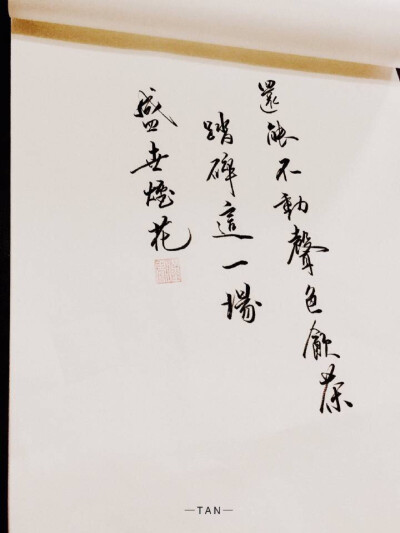 還能不動聲色飲茶
踏碎這一場
盛世煙花
—TAN—